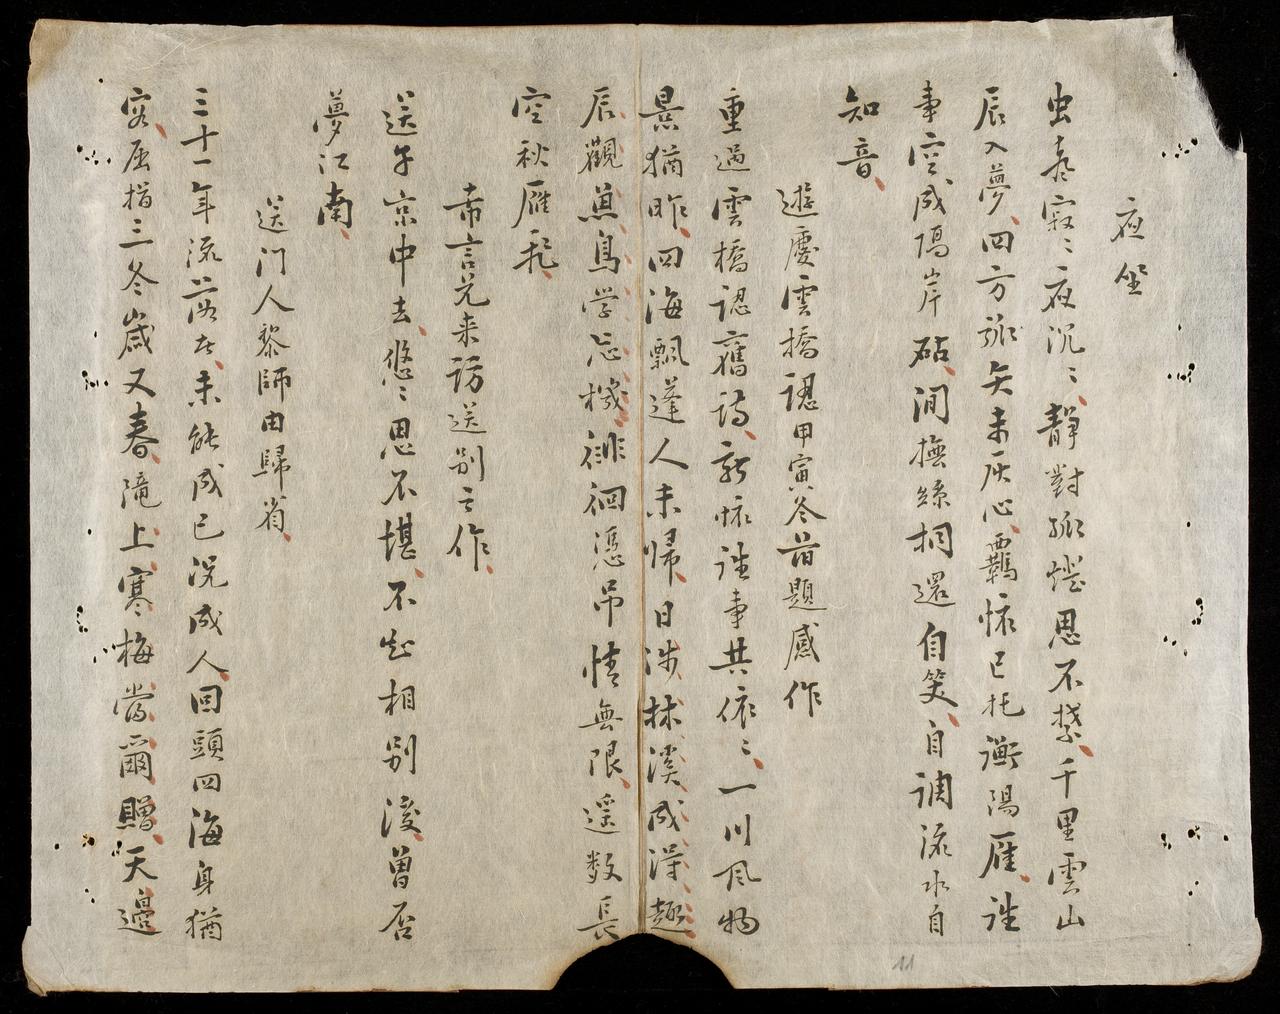 夜坐
虫声寂〻夜沉〻静對孤燈思不禁千里雲山
辰入夢四方孤矢未灰心羈懷已托衡陽雁往
事空成隔岸砧间撫絲桐還自笑自調流水自
知音
遊慶雲橋認甲寅冬旧題感作
重過雲橋認舊詩新懷往事共依〻一川风物
景猶昨四海飄蓬人未帰日涉林溪成淂趣
辰觀魚鳥学忘機徘徊憑吊情無限遥数長
空秋雁飛
希言兄来訪送别之作
送子京中去悠〻思不堪不知相别後曾否
夢江南
送门人黎師由歸省
三十一年流落在未能成已况成人回頭四海身猶
客屈指三冬嵗又春隴上寒梅當爾贈天邉
11